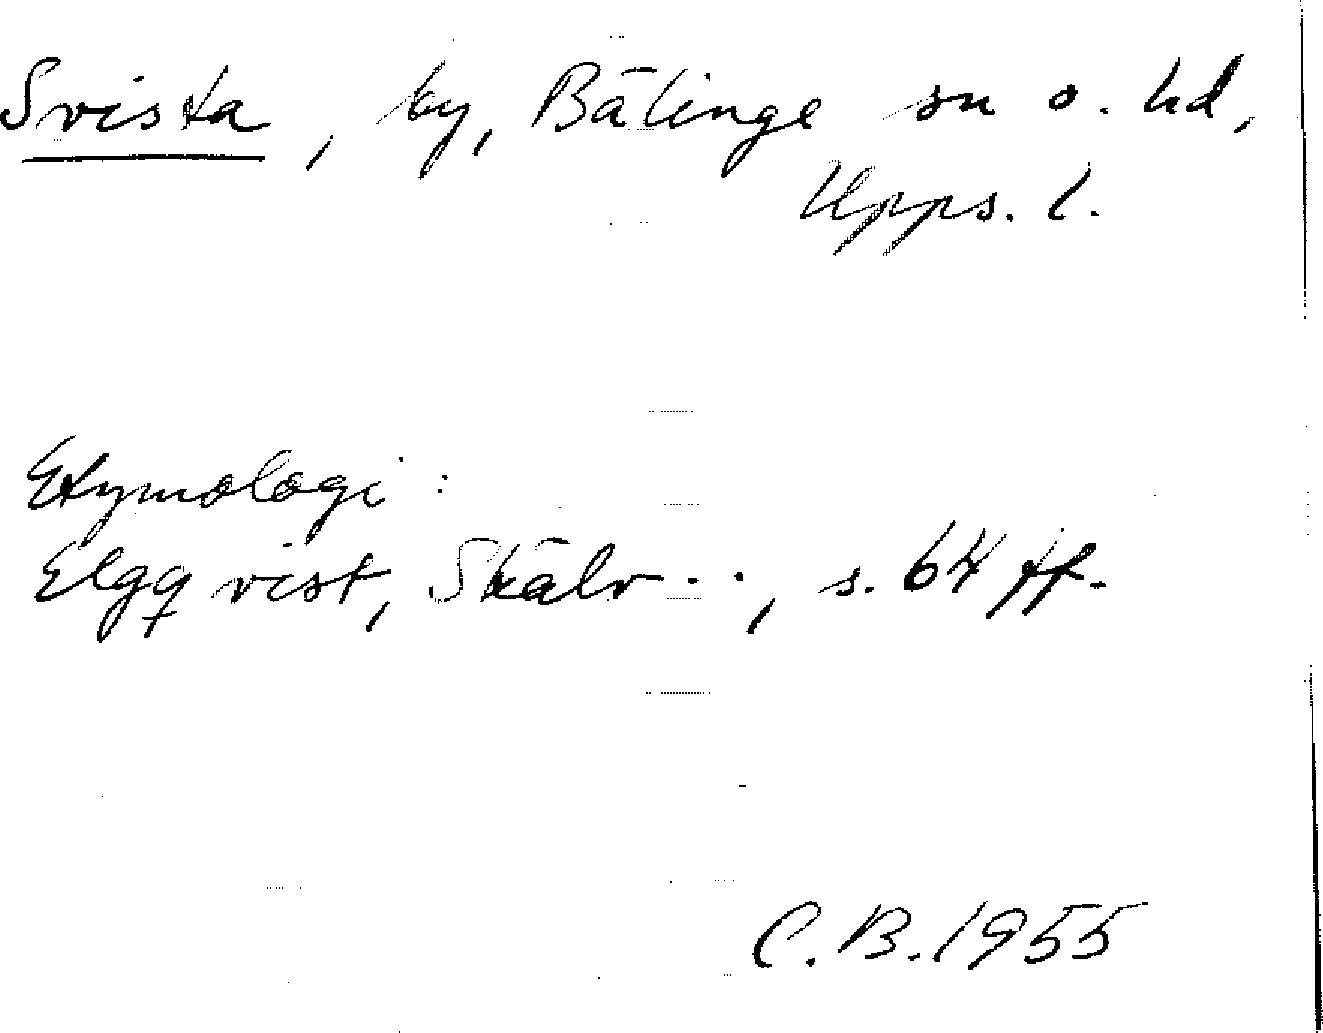 Svista, by, Bälinge sn o. hd,
Upps. l.
Etymologi:
Elgqvist, Skälv . . , s. 64 ff.
C. B. 1955